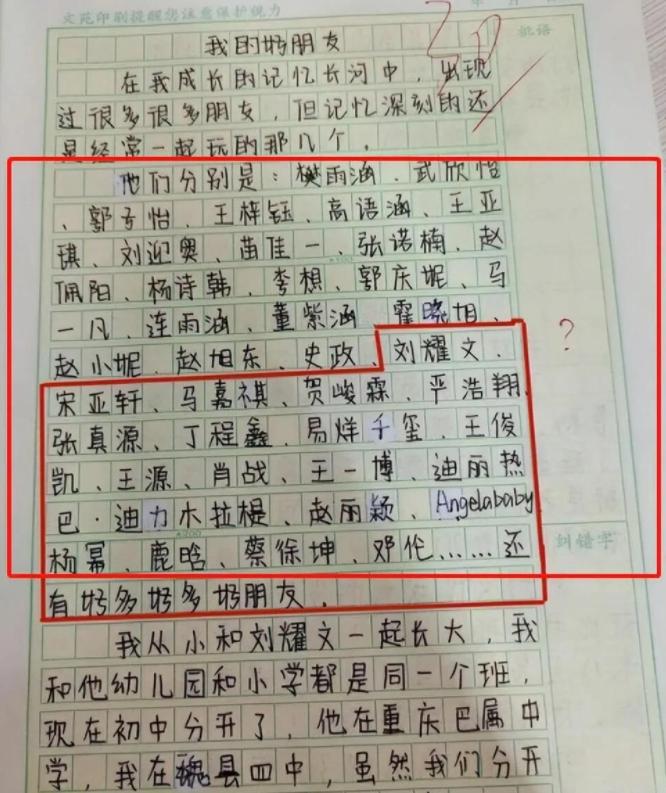 文苑印刷提醒您注意保护视力
年 月
30
批语
我的好朋友
在我成长的记忆长河中，出现
过很多很多朋友，但记忆深刻的还
是经常一起玩的那几个。
他们分别是：樊雨涵、武欣怡
、郭子怡、王梓钰、高语涵、王亚
琪、刘迎奥、苗佳一、张诺楠、赵
佩阳、杨诗韩、李想、郭庆妮、马
一凡、连雨涵、董紫涵、霍晓旭、
赵小妮、赵旭东、史政、刘耀文、
宋亚轩、马嘉祺、贺峻霖、严浩翔、
张真源、丁程鑫、易烊千玺、王俊
凯、王源、肖战、王一博、迪丽热
巴·迪力木拉提、赵丽颖、Angelababy
杨幂、鹿晗、蔡徐坤、邓伦……还
有好多好多好朋友。
?
纠错字
我从小和刘耀文一起长大，我
和他幼儿园和小学都是同一个班，
现在初中分开了，他在重庆巴属中
学，我在魏县四中，虽然我们分开